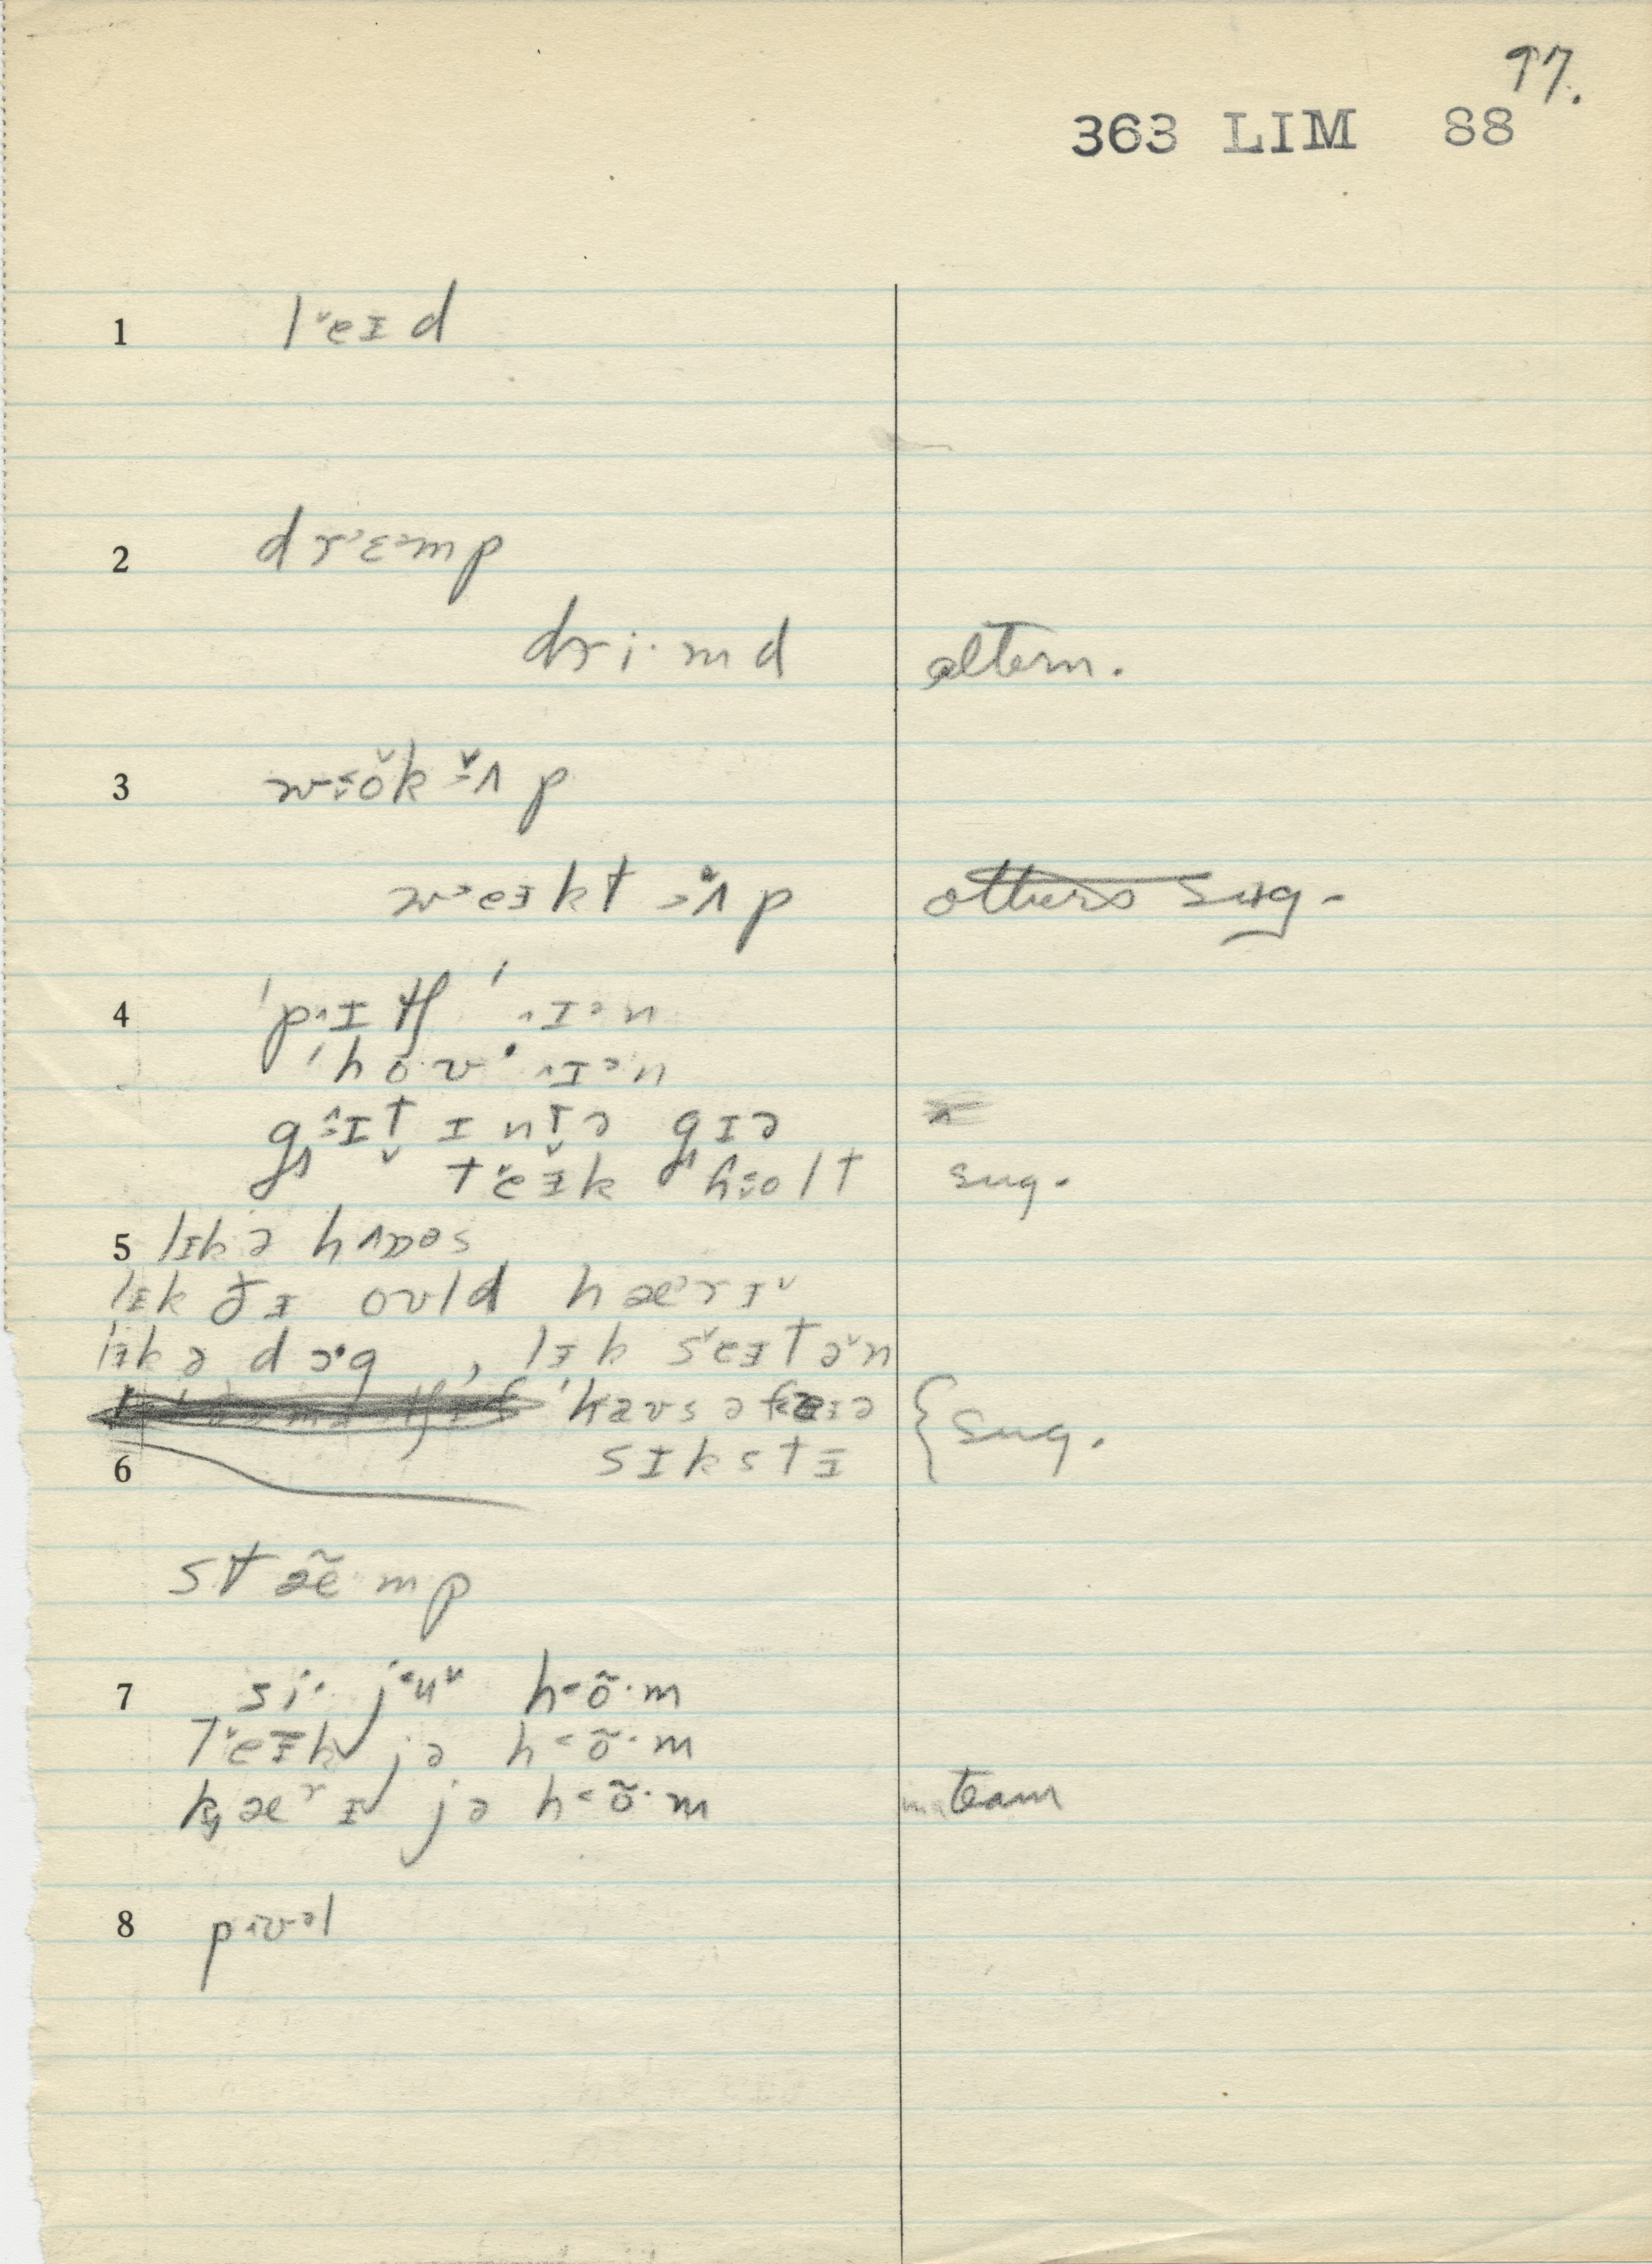 97.
363 LIM 88
1 l˅eɪd
2 drɛ˃mp
dri·md altern.
3 w˂o̯k ʌp
w˃eɪkt ʌp others sug.
4 ˈp˄ɪtʃ ˈ˄ɪ˃n
ˈhov ˈ˄ɪ˃n
g˄ɪt ɪntə gɪə
teɪk holt sug.
5 lɪk ə hʌɒəs
lɪk ðɪ oʊld hærɪ˅
lɪk ə dɔ·g , lɪk s˅eɪtə˅n
ˈkaʊs ə sug.
6 sɪkstɪ
stæ̃mp
7 si· ju˅ h˂õ·m
t˅eɪk jə h˂õ·m
kærɪ˅ jə h˂õ·m team
8 p˄ɪvəl